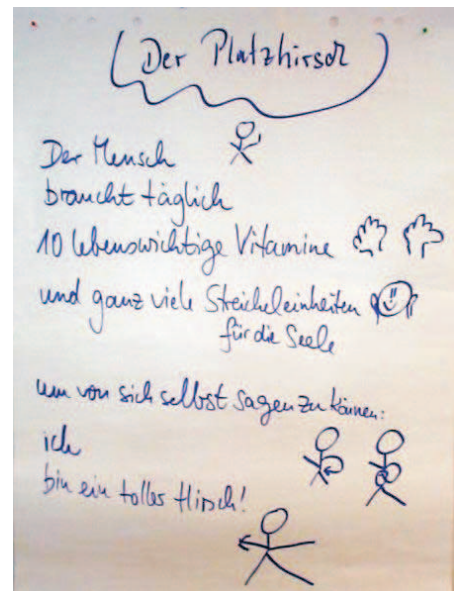 Der Platzhirsch
Der Mensch
braucht täglich
10 lebenswichtige Vitamine
und ganz viele Streicheleinheiten
für die Seele
um von sich selbst sagen zu können:
ich
bin ein toller Hirsch!